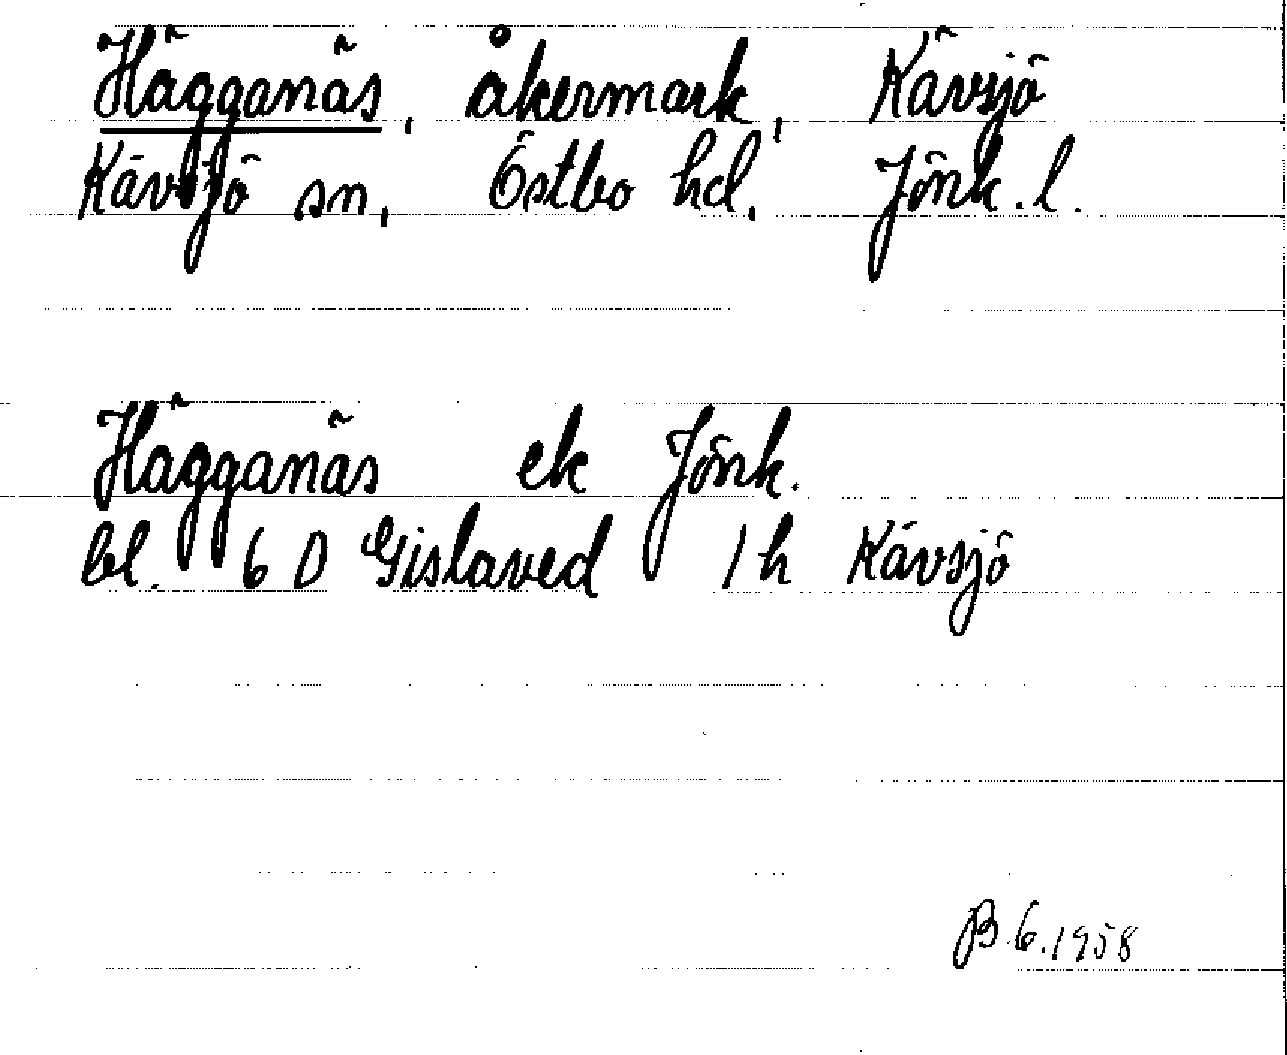 Hägganäs, åkermark, Kävsjö
Kävsjö sn, Östbo hd, Jönk. l.
Hägganäs ek Jönk.
bl. 6 D Gislaved 1 h Kävsjö
B.G.1958